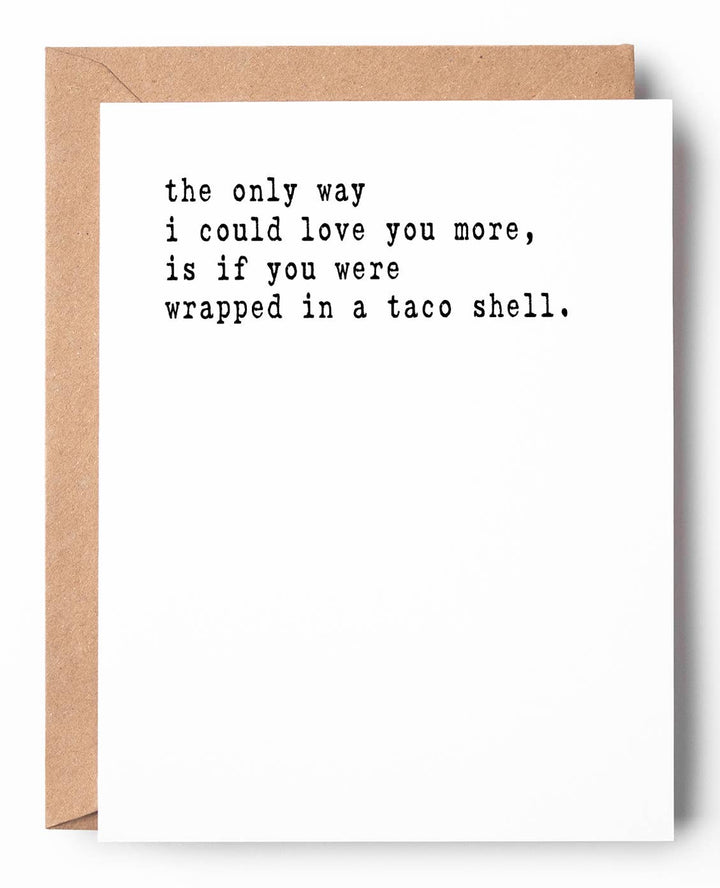 the only way
i could love you more,
is if you were
wrapped in a taco shell.